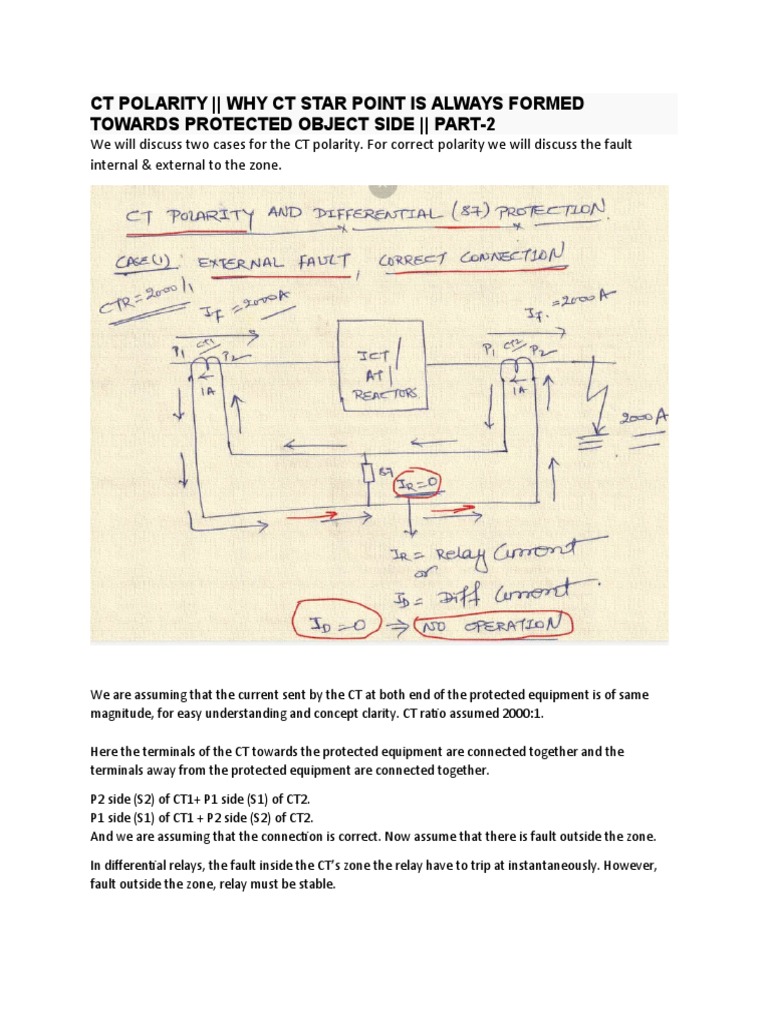 CT POLARITY || WHY CT STAR POINT IS ALWAYS FORMED
TOWARDS PROTECTED OBJECT SIDE || PART-2
We will discuss two cases for the CT polarity. For correct polarity we will discuss the fault
internal & external to the zone.
CT POLARITY AND DIFFERENTIAL (87) PROTECTION.
CASE(1): EXTERNAL FAULT, CORRECT CONNECTION
CTR=2000/1
If = 2000A
If. = 2000A
P1 CT1 P2
ICT/
AT/
REACTORS
P1 CT2 P2
1A
1A
2000A
87
IR=0
IR = Relay Current
or
ID = Diff Current.
ID=0 ⇒ NO OPERATION
We are assuming that the current sent by the CT at both end of the protected equipment is of same
magnitude, for easy understanding and concept clarity. CT ratio assumed 2000:1.
Here the terminals of the CT towards the protected equipment are connected together and the
terminals away from the protected equipment are connected together.
P2 side (S2) of CT1+ P1 side (S1) of CT2.
P1 side (S1) of CT1 + P2 side (S2) of CT2.
And we are assuming that the connection is correct. Now assume that there is fault outside the zone.
In differential relays, the fault inside the CT’s zone the relay have to trip at instantaneously. However,
fault outside the zone, relay must be stable.